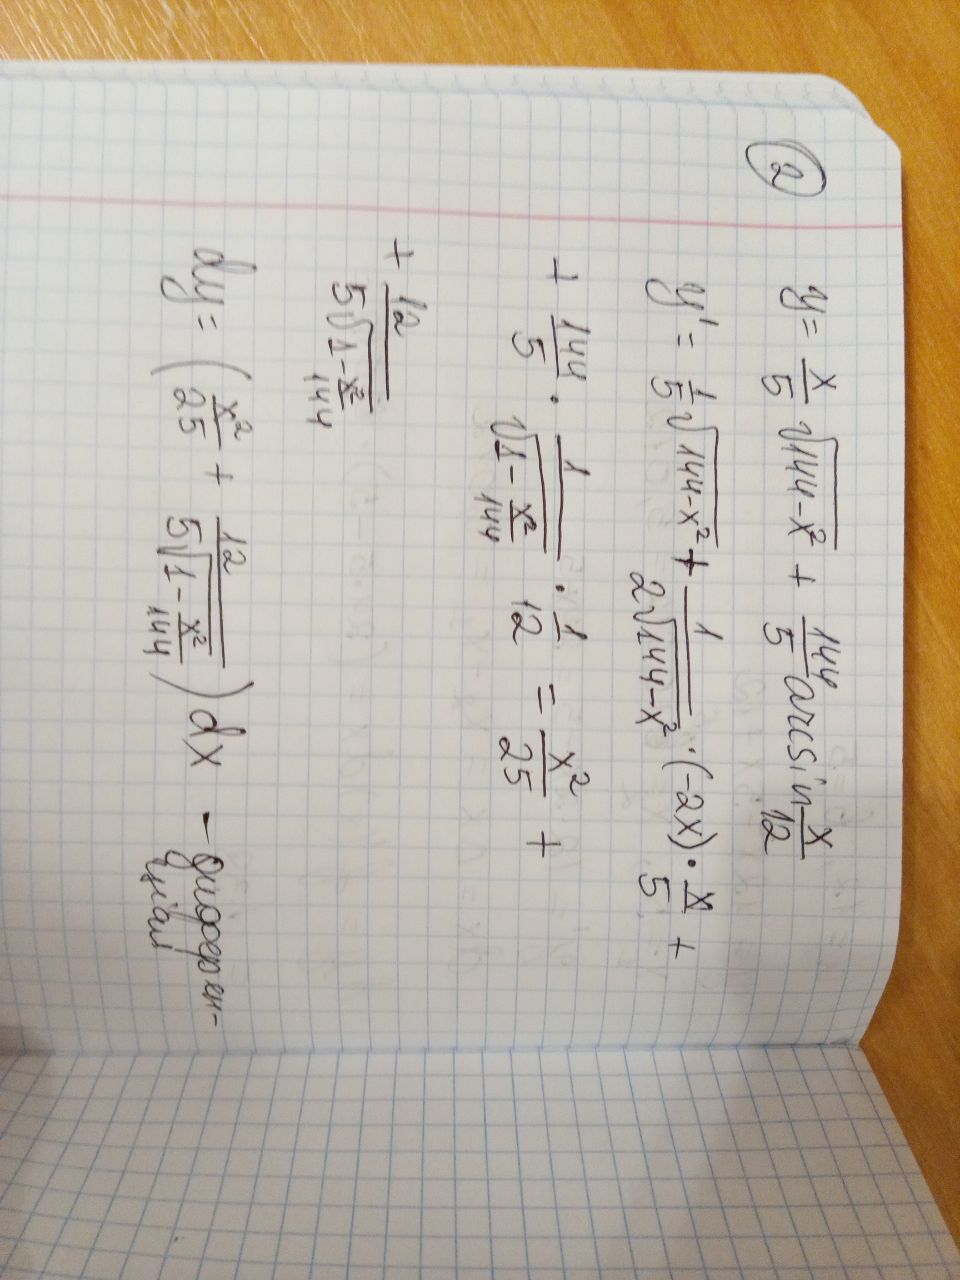 ② y = x/5 √(144-x²) + 144/5 arcsin x/12
y' = 1/5 √(144-x²) + 1/(2√(144-x²)) · (-2x) · x/5 +
+ 144/5 · 1/√(1 - x²/144) · 1/12 = x²/25 +
+ 12/(5√(1 - x²/144))
dy = (x²/25 + 12/(5√(1 - x²/144))) dx - диферен-
ціал